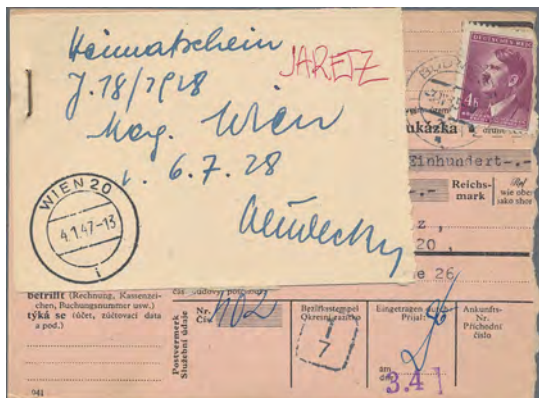 Heimatschein
J. 78/1928
Mag. Wien
v. 6.7.28
JARETZ
WIEN 20
4.1.47-13
i
DEUTSCHES REICH
4 K
ukázka
Einhundert-.-
-.-
Reichs-
mark
wie oben
jako shor
z ,
20 ,
e 26
betrifft (Rechnung, Kassenzei-
chen, Buchungsnummer usw.)
týká se (účet, zúčtovací data
a pod.)
Postvermerk
Služební údaje
Nr.
Čís.
402
Bezirksstempel
Okresní razítko
1
7
Eingetragen durch
Přijal:
am
dne
3.4
Ankunfts-
Nr.
Příchodní
číslo
041